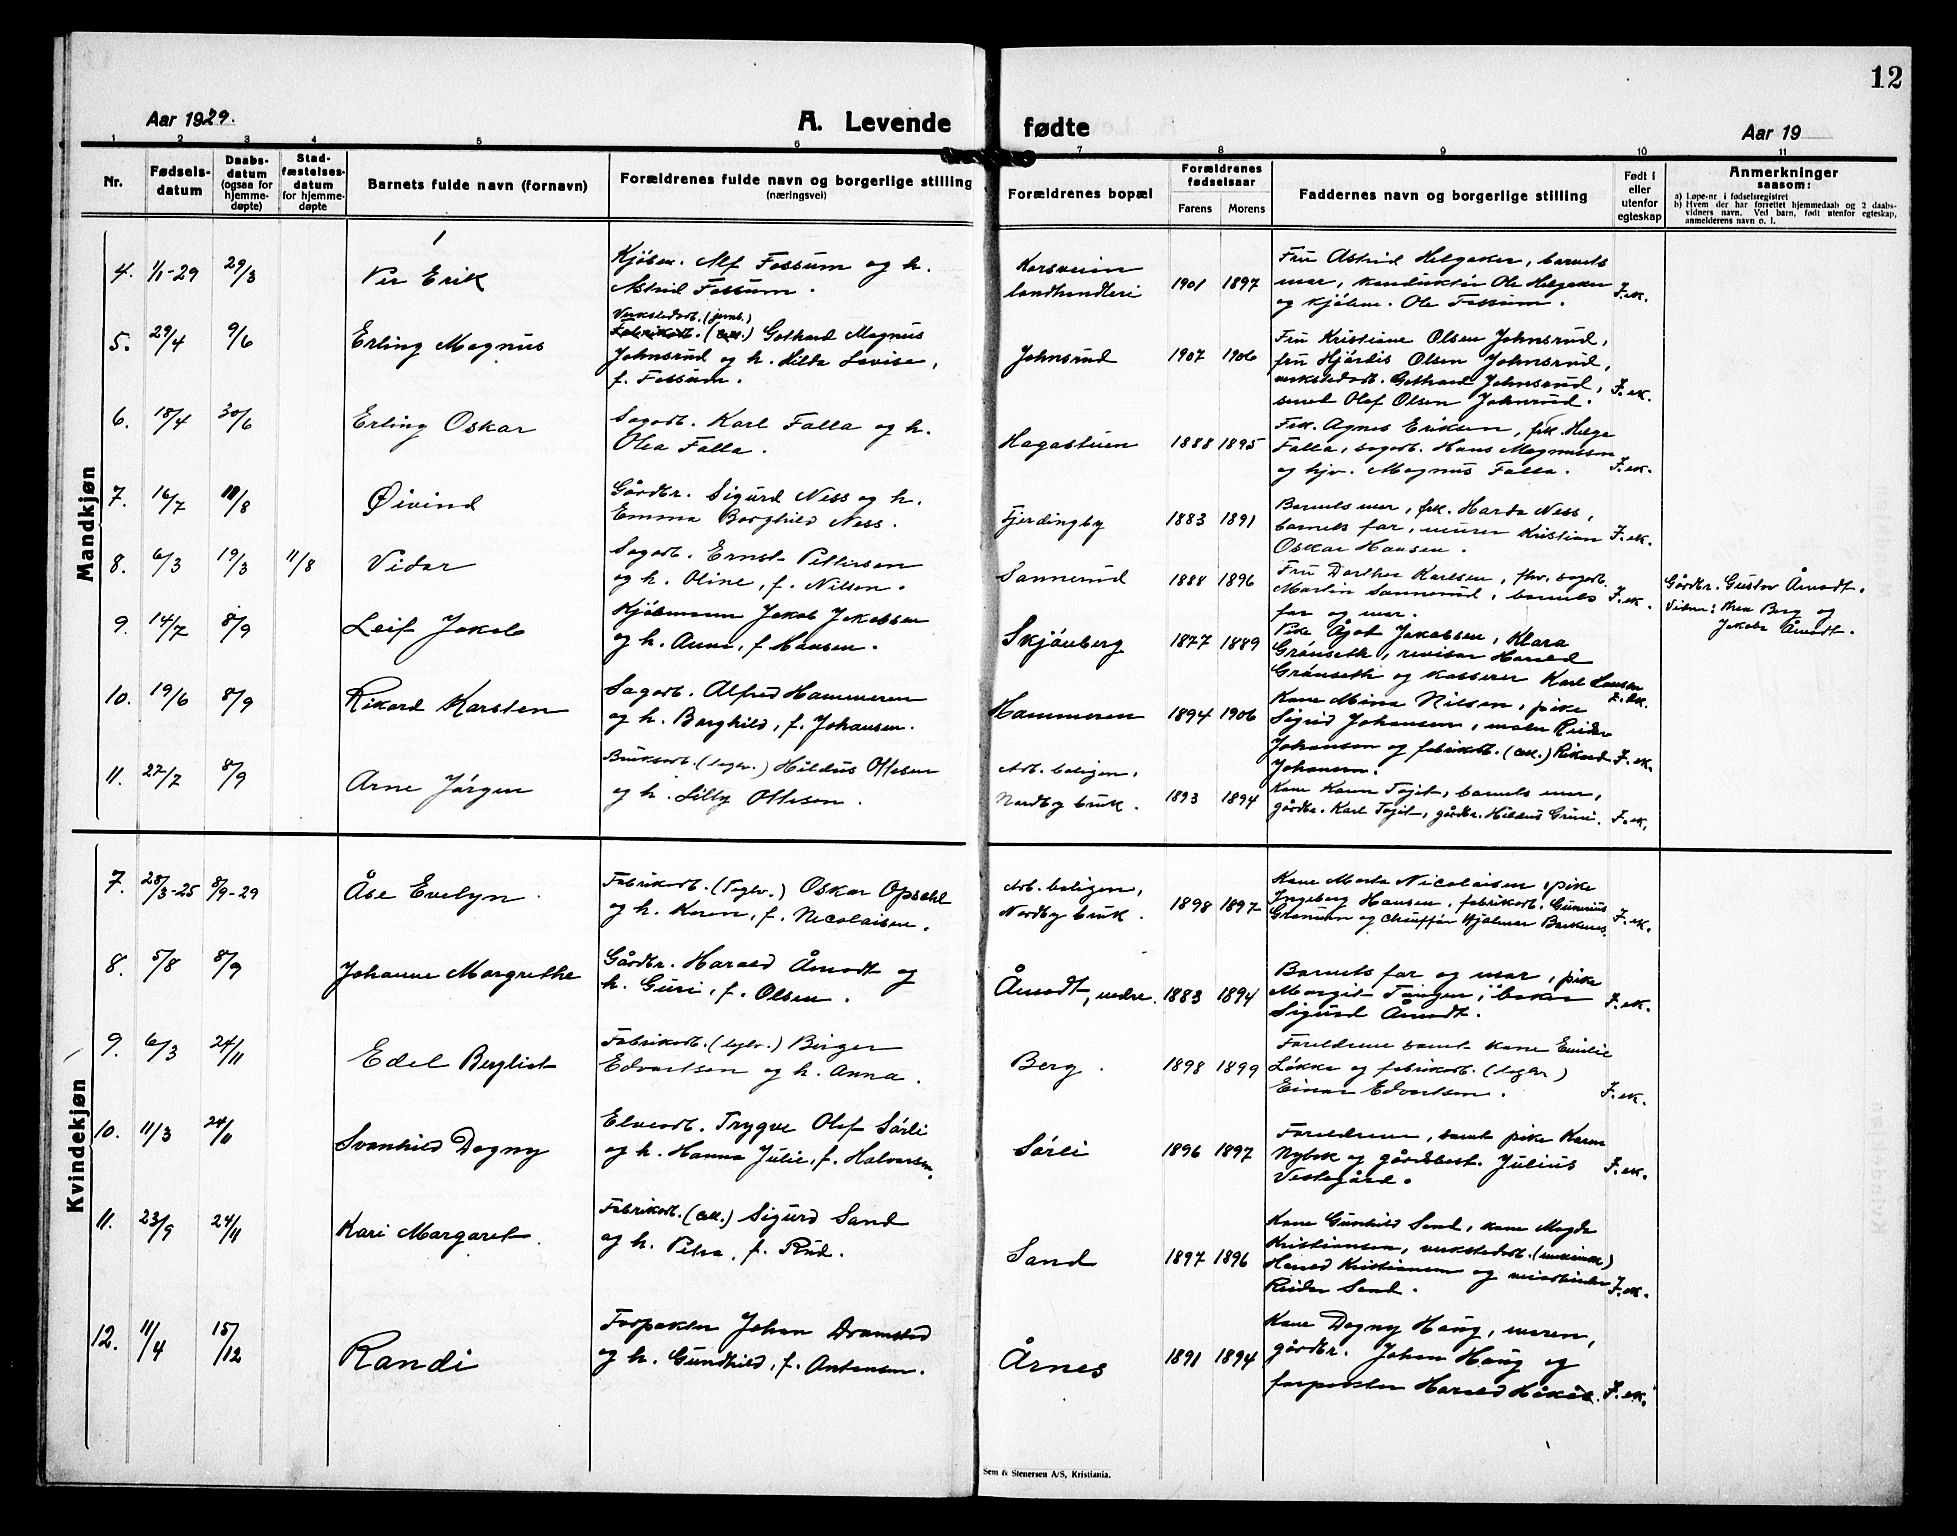 12
Aar 1929.
A. Levende fødte
Aar 19
1 2 3 4 5 6 7 8 9 10 11
Nr.
Fødsels-
datum
Daabs-
datum
(ogsaa for
hjemme-
døpte)
Stad-
fæstelses-
datum
for hjemme-
døpte
Barnets fulde navn (fornavn)
Forældrenes fulde navn og borgerlige stilling
(næringsvei)
Forældrenes bopæl
Forældrenes
fødselsaar
Farens Morens
Faddernes navn og borgerlige stilling
Født i
eller
utenfor
egteskap
Anmerkninger
saasom:
a) Løpe-nr. i fødselsregistret
b) Hvem der har forrettet hjemmedaab og 2 daabs-
vidners navn. Ved barn, født utenfor egteskap,
anmelderens navn o. l.
Mandkjøn
4. 1/1-29 29/3 Per Erik
Kjøbm. Alf Fossum og h.
Astrid Fossum.
Korsveien
landhandleri
1901 1897
Fru Astrid Helgaker, barnets
mor, konduktør Ole Helgaker
og kjøbm. Ole Fossum.
F. ek.
5. 29/4 9/6 Erling Magnus
Verkstedarb. (jernb.)
Gothard Magnus
Johnsrud og h. Hilda Lovise,
f. Fossum.
Johnsrud
1907 1906
Fru Kristiane Olsen Johnsrud,
fru Hjørdis Olsen Johnsrud,
verkstedarb. Gothard Johnsrud,
samt Olaf Olsen Johnsrud.
F. ek.
6. 18/4 30/6 Erling Oskar
Sagarb. Karl Falla og h.
Olea Falla.
Hagastuen
1888 1895
Frk. Agnes Eriksen, frk. Helga
Falla, sagarb. Hans Magnussen
og hjv. Magnus Falla.
F. ek.
7. 16/7 11/8 Øivind
Gårdbr. Sigurd Ness og h.
Emma Borghild Ness.
Fjerdingby
1883 1891
Barnets mor, frk. Harda Ness,
barnets far, murer Kristian
Oskar Hansen.
F. ek.
8. 6/3 19/3 11/8 Vidar
Sagarb. Ernst Pettersen
og h. Oline, f. Nilsen.
Sannerud
1888 1896
Fru Dorthea Karlsen, fhv. sagarb.
Martin Sannerud, barnets
far og mor.
F. ek.
Gårdbr. Gustav Åmodt.
Vidner: Thea Berg og
Jakobe Åmodt.
9. 14/7 8/9 Leif Jakob
Kjøbmann Jakob Jakobsen
og h. Anna, f. Hansen.
Skjønberg
1877 1889
Pike Ågot Jakobsen, Klara
Grønseth, revisor Harald
Grønseth og kasserer Karl Larsen
F. ek.
10. 19/6 8/9 Rikard Karsten
Sagarb. Alfred Hammeren
og h. Borghild, f. Johansen.
Hammeren
1894 1906
Kone Mina Nilsen, pike
Sigrid Johansen, maler Reidar
Johansen og fabrikarb. (cell.) Rikard
Johansen.
F. ek.
11. 27/7 8/9 Arne Jørgen
Bruksarb. (teglv.) Hildus Ottesen
og h. Lilly Ottesen.
Arb. boligen,
Nordby bruk.
1893 1894
Kone Karen Tøjet, barnets mor,
gårdbr. Karl Tøjet, gårdbr. Hildus Grini.
F. ek.
Kvindekjøn
7. 28/3-25 8/9-29 Åse Evelyn
Fabrikarb. (Teglv.) Oskar Opsahl
og h. Karen, f. Nicolaisen.
Arb. boligen,
Nordby bruk.
1898 1897
Kone Marta Nicolaisen, pike
Ingeborg Hansen, fabrikarb. Gunerius
Granum og chauffør Hjalmar Barkenes.
F. ek.
8. 5/8 8/9 Johanne Margrethe
Gårdbr. Harald Åmodt og
h. Guri, f. Olsen.
Åmodt, nedre.
1883 1894
Barnets far og mor, pike
Margit Tangen, baker
Sigurd Åmodt.
F. ek.
9. 6/3 24/11 Edel Bergliot
Fabrikarb. (teglv.) Birger
Edvartsen og h. Anna.
Berg.
1898 1899
Foreldrene samt kone Emilie
Løkke og fabrikarb. (teglv.)
Einar Edvartsen.
F. ek.
10. 11/3 24/11 Svanhild Dagny
Elvearb. Trygve Olaf Sørli
og h. Hanna Julie, f. Halvorsen.
Sørli
1896 1897
Foreldrene, samt pike Karen
Nybak og gårdsbest. Julius
Vestgård.
F. ek.
11. 23/9 24/11 Kari Margaret.
Fabrikarb. (cell.) Sigurd Sand
og h. Petra, f. Rud.
Sand
1897 1896
Kone Gunhild Sand, kone Magda
Kristiansen, verkstedarb.
Harald Kristiansen og
Reidar Sand.
F. ek.
12. 11/4 15/12 Randi
Forpakter Johan Dramstad
og h. Gundhild, f. Antonsen.
Årnes
1891 1894
Kone Dagny Haug, moren,
gårdbr. Johan Haug og
forpakter Harald Håkås.
F. ek.
Sem & Stenersen A/S, Kristiania.